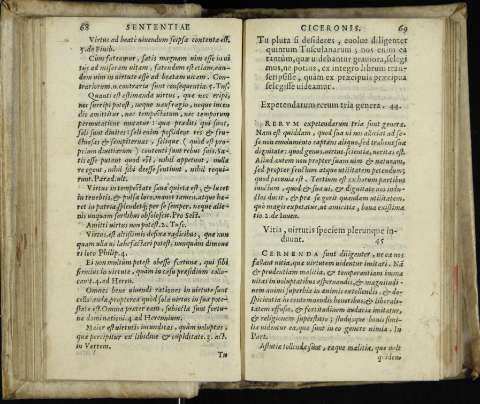 68 SENTENTIAE
Virtus ad beate vivendum seipsa contenta est.
5. de Finib.
Cum fateamur, satis magnam vim esse in vi
tiis ad miseram vitam, fatendum est etiam, ean
dem vim in virtute esse ad beatam vitam. Con
trariorum n. contraria sunt consequentia. 5. Tus.
Quanti est aestimanda virtus, quae nec eripi,
nec surripi potest, neque naufragio, neque incen
dio amittitur, nec tempestatum, nec temporum
permutatione mutatur: qua praediti qui sunt,
soli sunt divites: soli enim possident res & fru
ctuosas & sempiternas, solique (quod est pro-
prium divitiarum) contenti sunt rebus suis. Sa-
tis esse putant quod est, nihil appetunt, nulla
re egent, nihil sibi deesse sentiunt, nihil requi-
runt. Parad. ult.
Virtus in tempestate saeva quieta est, & lucet
in tenebris, & pulsa loco, manet tamen, atque hae-
ret in patria, splendetq; per se semper, neque alie-
nis unquam sordibus obsolescit. Pro Sest.
Amitti virtus non potest. 2. Tusc.
Virtus est altissimis defixa radicibus, quae nun
quam ulla vi labefactari potest, nunquam dimove
ri loco. Philip. 4.
Ei non multum potest obesse fortuna, qui sibi
firmius in virtute, quam in casu praesidium collo-
cavit. 4. ad Heren.
Omnes bene vivendi rationes in virtute sunt
collocandae, propterea quod sola virtus in sua pote-
state est. Omnia praeterea, subiecta sunt fortu-
nae dominationi. 4. ad Herennium.
Maior est virtutis iucunditas, quam voluptas,
quae percipitur ex libidine & cupiditate. 3. act.
in Verrem.
Tu
CICERONIS. 69
Tu plura si desideres, evolve diligenter
quintum Tusculanarum; nos enim ea
tantum, quae videbantur graviora, selegi
mus, ne potius, ex integro librum tran-
scripsisse, quam ex praecipuis praecipua
selegisse videamur.
Expetendarum rerum tria genera. 44.
RERUM expetendarum tria sunt genera.
Nam est quiddam, quod sua vi nos alliciat ad se-
se, non emolumento captans aliquo, sed trahens sua
dignitate: quod genus, virtus, scientia, veritas est.
Aliud autem non propter suam vim & naturam,
sed propter fructum atque utilitatem petendum;
quod pecunia est. Tertium est ex horum partibus
iunctum, quod & sua vi, & dignitate nos indu-
ctos ducit, & prae se gerit quandam utilitatem,
quo magis expetatur, ut amicitia, bona existima
tio. 2. de Inven.
Vitia, virtutis speciem plerunque in-
duunt. 45
CERNENDA sunt diligenter, ne ea nos
fallant vitia, quae virtutem videntur imitari. Nam
& prudentiam malitia, & temperantiam imma
nitas in voluptatibus aspernandis, & magnitudi-
nem animi superbia in animis extollendis, & de-
spicientia in contemnendis honoribus, & liberali-
tatem effusio, & fortitudinem audacia imitatur,
& religionem superstitio; studeque bonis simi-
lia videntur ea, quae sunt in eo genere nimia. In
Part.
Astutiae tollendae sunt, eaque malitia, quae vult